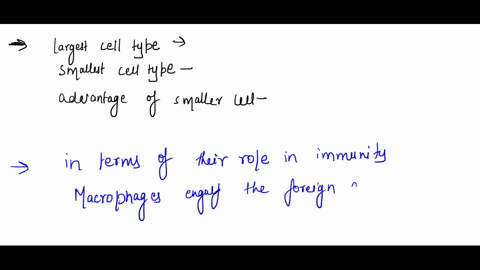 → largest cell type →
smallest cell type —
advantage of smaller cell —
→ in terms of their role in immunity
Macrophages engulf the foreign